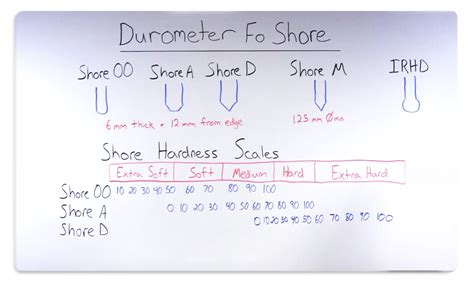 Durometer Fo Shore
Shore OO Shore A Shore D Shore M IRHD
6 mm thick + 12 mm from edge 1.25 mm Ø min
Shore Hardness Scales
Extra Soft Soft Medium Hard Extra Hard
Shore OO 10 20 30 40 50 60 70 80 90 100
Shore A 0 10 20 30 40 50 60 70 80 90 100
Shore D 0 10 20 30 40 50 60 70 80 90 100